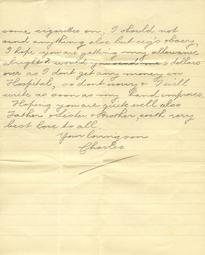 some cigarettes on, I should not
send anything else but cig's & tobaccy,
I hope you are getting my allowance
alright & would you send me 2 dollars
over as I dont get any money in
Hospital, so dont worry & I will
write as soon as my hand improves.
Hoping you are quite well also
Father & Sister & Brother, with very
best love to all
Your loving son
Charlie